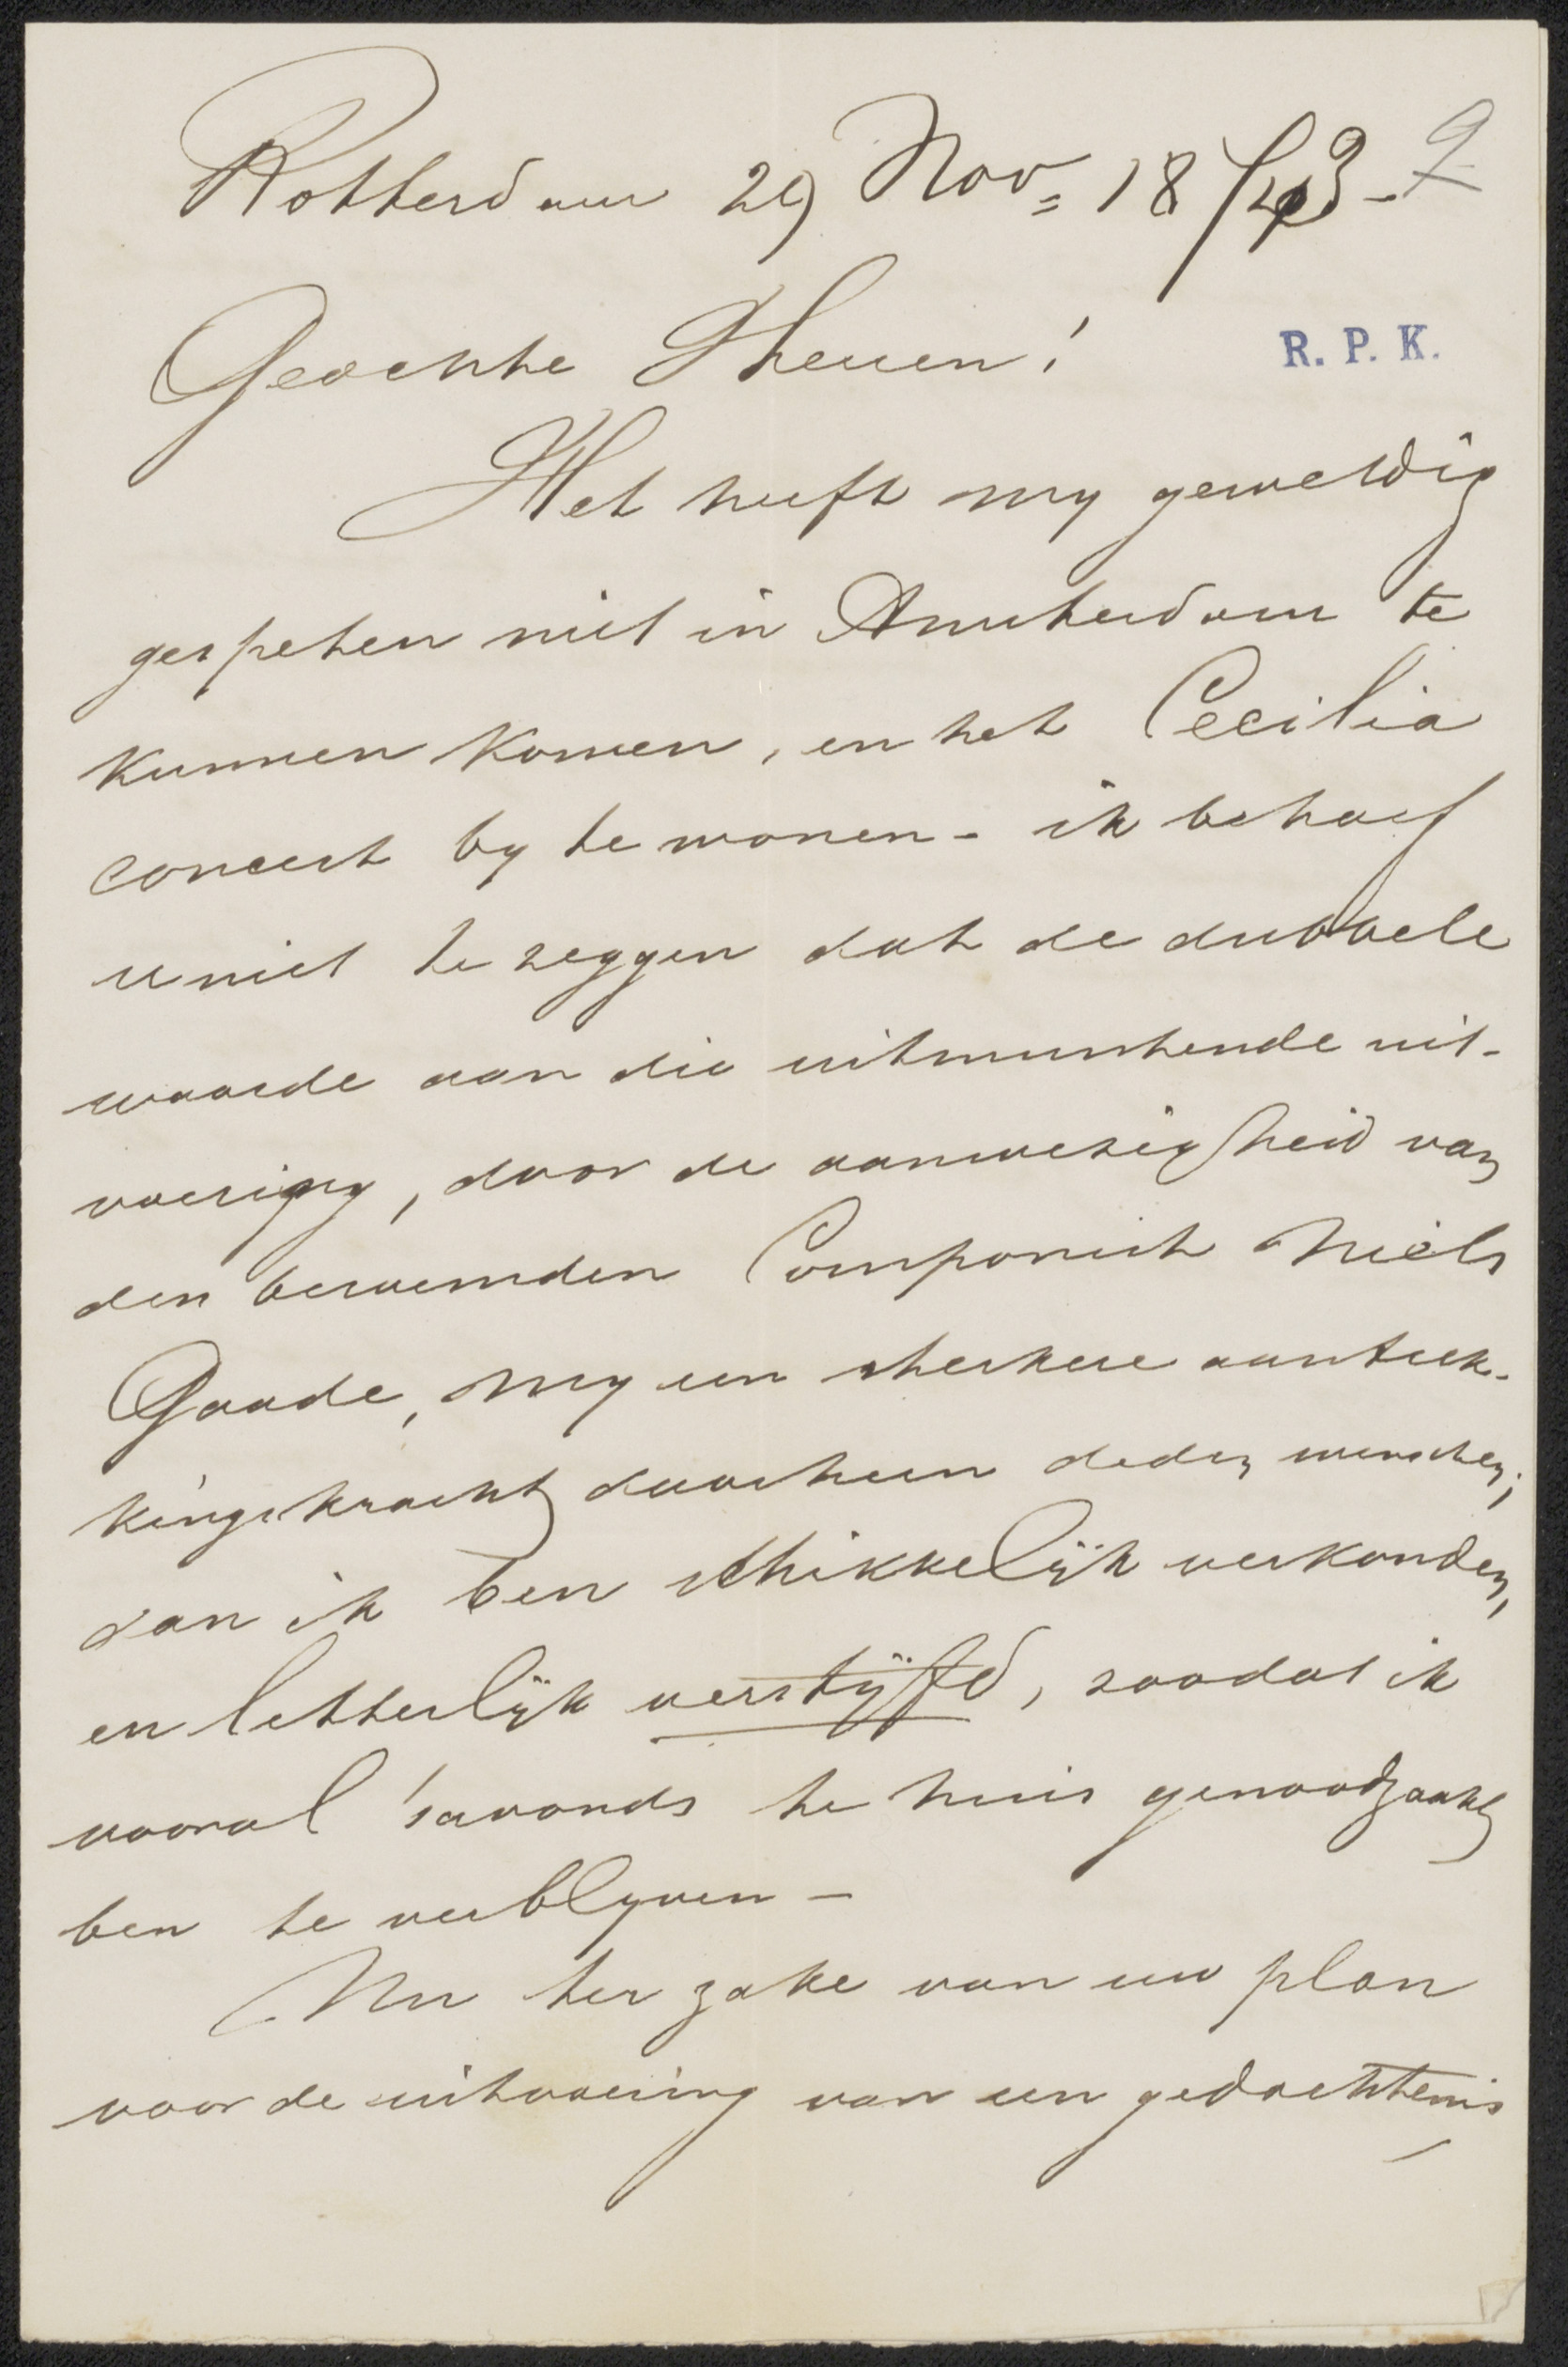 Rotterdam 29 Nov= 18/43-
R. P. K.
Geachte Heeren!
Het heeft my geweldig
gespeten niet in Amsterdam te
kunnen komen, en het Cecilia
concert by te wonen - ik behoef
u niet te zeggen dat de dubbele
waarde aan die uitmuntende uit-
voering, door de aanwezigheid van
den beroemden Componist Niels
Gaade, my een sterkere aantrek-
kingskracht daarheen deden wenschen;
dan ik ben schikkelijk verkouden,
en letterlijk verstijfd, zoodat ik
vooral 'savonds te huis genoodzaakt
ben te verblyven -
Nu ter zake van uw plan
voor de uitvoering van een gedachtenis